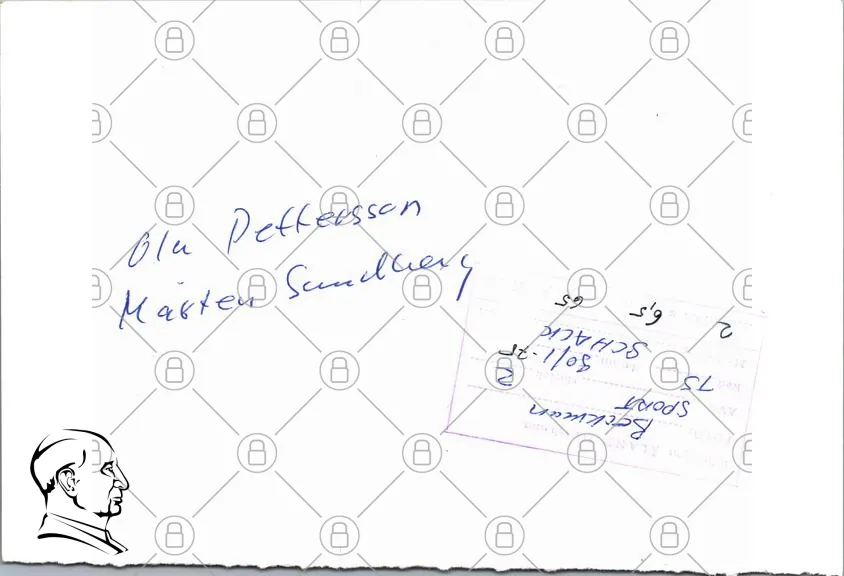 Ola Pettersson
Mårten Sundberg
Beckman
SPORT
75
30/1-75
SCHACK
2 6,5 65